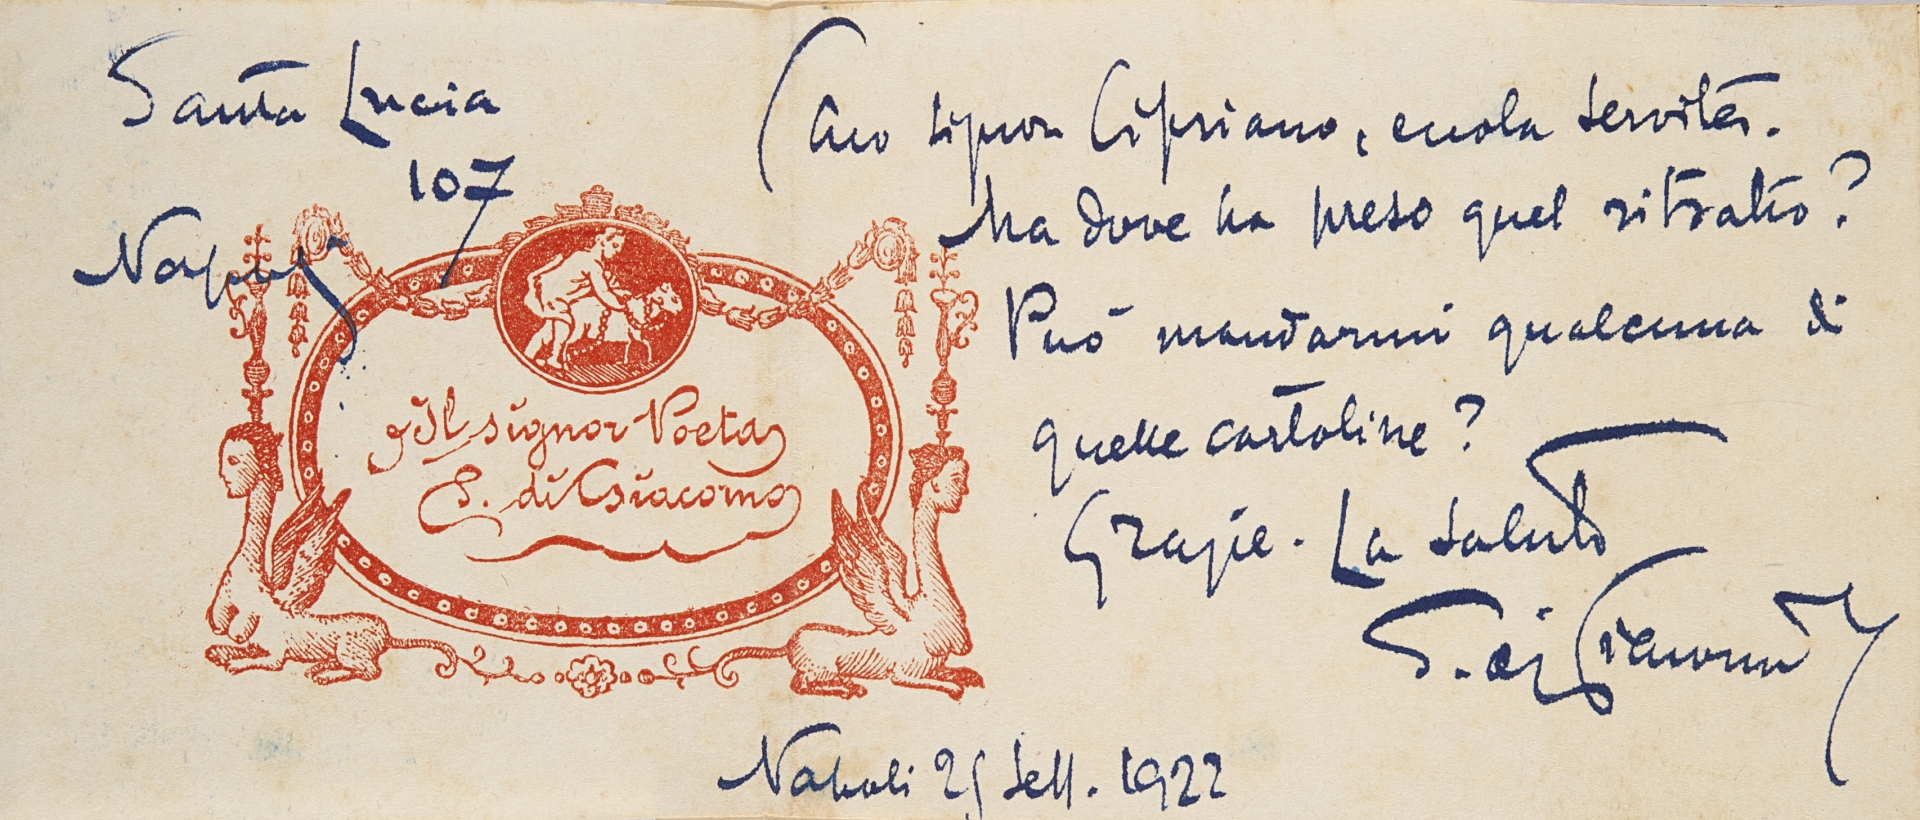 Santa Lucia
107
Napoli
Il signor Poeta
S. di Giacomo
Caro signor Cipriano, eccola servita.
Ma dove ha preso quel ritratto?
Può mandarmi qualcuna di
quelle cartoline?
Grazie. La saluto
S. di Giacomo
Napoli 25 Sett. 1922